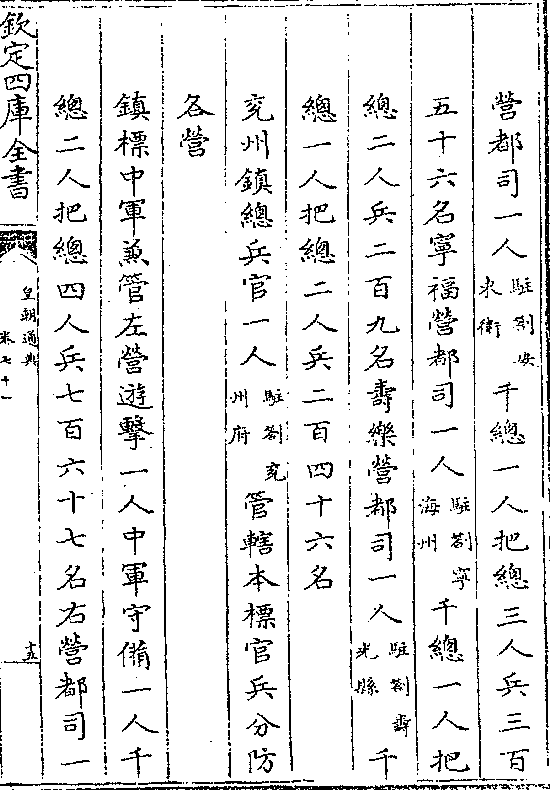 營都司一人駐劄安東衛千總一人把總三人兵三百
五十六名寧福營都司一人駐劄寧海州千總一人把
總二人兵二百九名壽樂營都司一人駐劄壽光縣千
總一人把總二人兵二百四十六名
兖州鎮總兵官一人駐劄兖州府管轄本標官兵分防
各營
鎮標中軍兼管左營遊擊一人中軍守備一人千
總二人把總四人兵七百六十七名右營都司一
欽定四庫全書
皇朝通典
卷七十一
十五